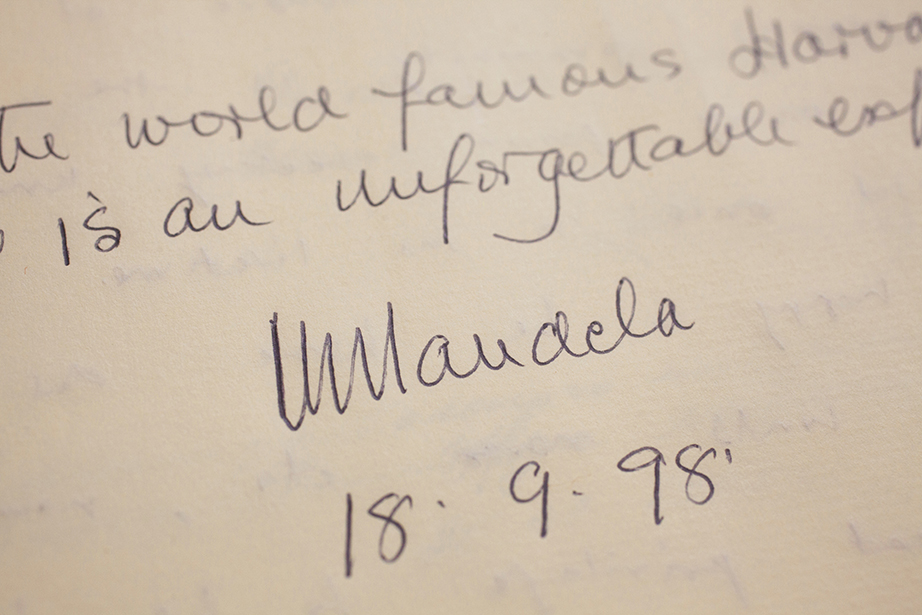 the world famous Harva
is an unforgettable exp
NMandela
18.9.98.